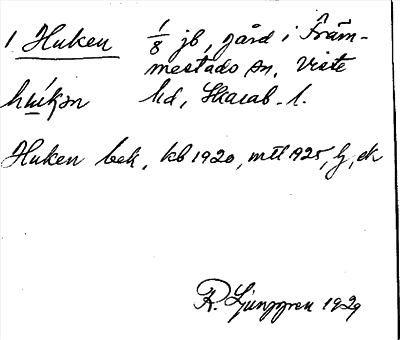 1 Huken 1/8 jb, gård i Främ-
mestads sn, Viste
hd, Skarab. l.
Huken bek, kb 1920, mtl 1925, J, ek
R. Ljunggren 1929